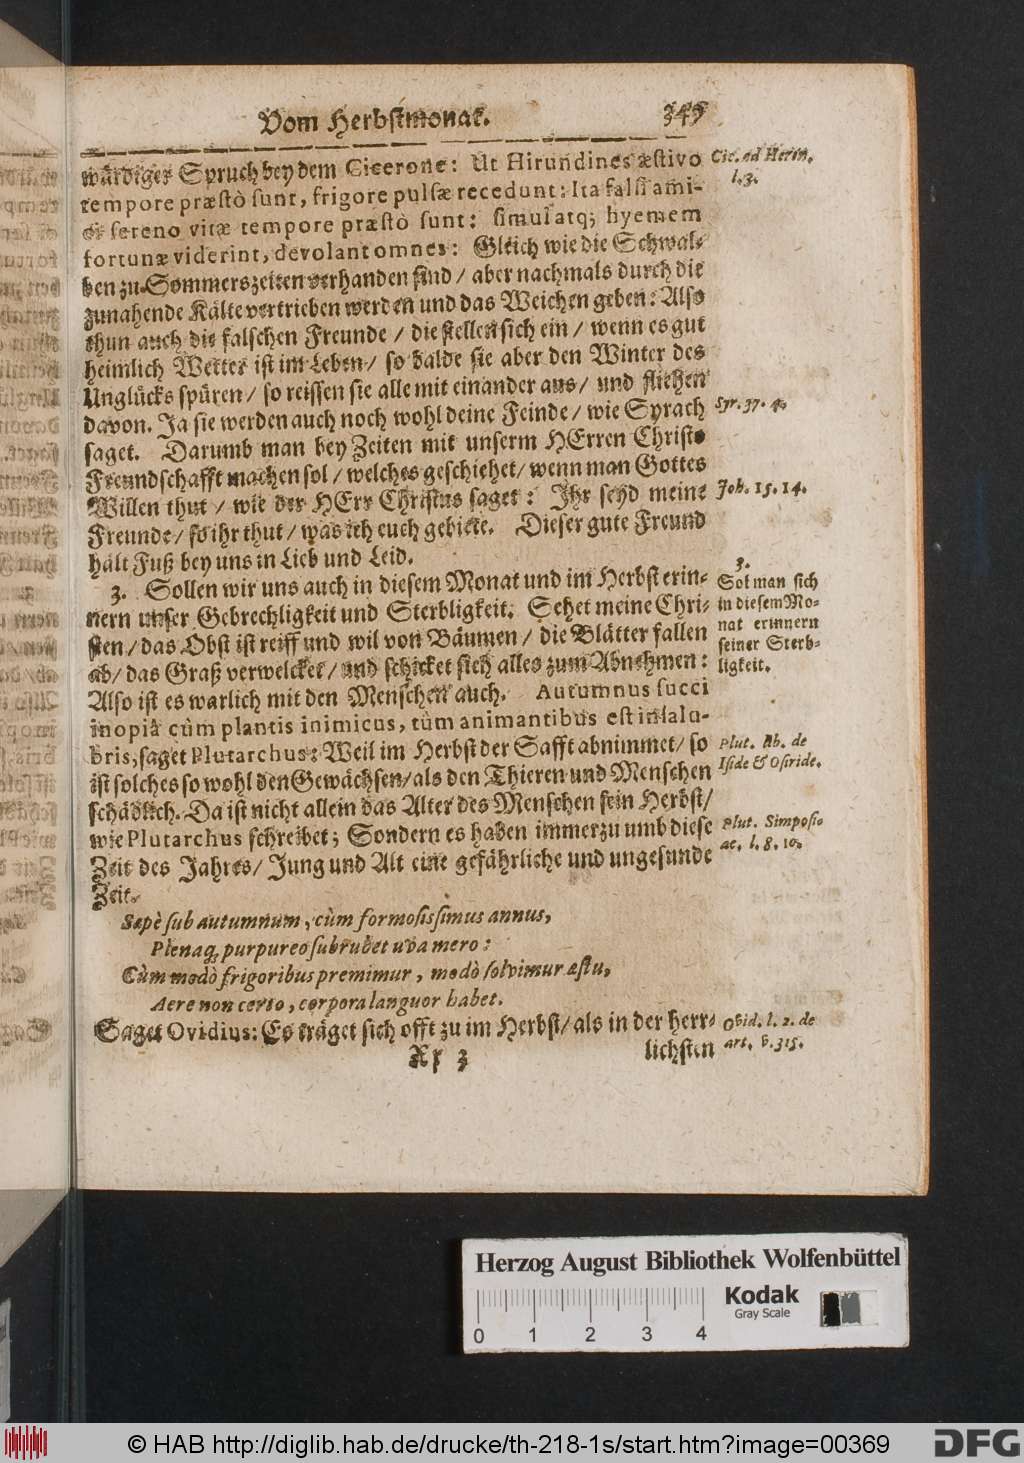 Vom Herbstmonat. 349
würdiger Spruch bey dem Cicerone: Ut Hirundines æstivo
tempore præstò sunt, frigore pulsæ recedunt: Ita falsi ami-
ci sereno vitæ tempore præstò sunt: simulatq; hyemem
fortunæ viderint, devolant omnes: Gleich wie die Schwal-
ben zu Sommerszeiten verhanden sind / aber nachmals durch die
zunahende Kälte vertrieben werden und das Weichen geben: Also
thun auch die falschen Freunde / die stellen sich ein / wenn es gut
heimlich Wetter ist im Leben / so balde sie aber den Winter des
Unglücks spüren / so reissen sie alle mit einander aus / und fliehen
davon. Ja sie werden auch noch wohl deine Feinde / wie Syrach
saget. Darumb man bey Zeiten mit unserm HErren Christo
Freundschafft machen sol / welches geschiehet / wenn man Gottes
Willen thut / wie der HErr Christus saget: Ihr seyd meine
Freunde / so ihr thut / was ich euch gebiete. Dieser gute Freund
hält Fuß bey uns in Lieb und Leid.
3. Sollen wir uns auch in diesem Monat und im Herbst erin-
nern unser Gebrechligkeit und Sterbligkeit. Sehet meine Chri-
sten / das Obst ist reiff und wil von Bäumen / die Blätter fallen
ab / das Graß verwelcket / und schicket sich alles zum Abnehmen:
Also ist es warlich mit den Menschen auch. Autumnus succi
inopiâ cùm plantis inimicus, tùm animantibus est insalu-
bris, saget Plutarchus: Weil im Herbst der Safft abnimmet / so
ist solches so wohl den Gewächsen / als den Thieren und Menschen
schädlich. Da ist nicht allein das Alter des Menschen sein Herbst /
wie Plutarchus schreibet; Sondern es haben immerzu umb diese
Zeit des Jahres / Jung und Alt eine gefährliche und ungesunde
Zeit.
Sæpè sub autumnum, cùm formosissimus annus,
Plenaq; purpureo subrubet uva mero:
Cùm modò frigoribus premimur, modò solvimur æstu,
Aere non certo, corpora languor habet.
Saget Ovidius: Es träget sich offt zu im Herbst / als in der herr-
Rr 3 lichsten
Cic. ad Heren.
l. 3.
Syr. 37. 4.
Joh. 15. 14.
3.
Sol man sich
in diesem Mo-
nat erinnern
seiner Sterb-
ligkeit.
Plut. lib. de
Iside & Osiride.
Plut. Simposi-
ac. l. 8. 10.
Ovid. l. 2. de
art. v. 315.
Herzog August Bibliothek Wolfenbüttel
Kodak
Gray Scale
0 1 2 3 4
© HAB http://diglib.hab.de/drucke/th-218-1s/start.htm?image=00369
DFG